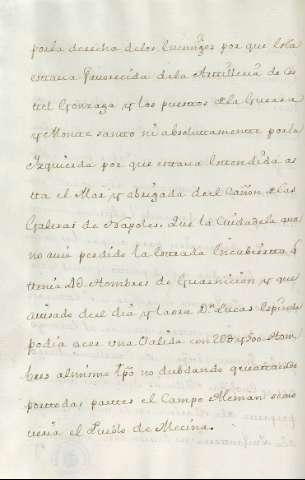 por la derecha delos Enemiges por que lola
estava favorecida dela Artilleria de Cas
tel Gonzaga y los puestos dela Guerra
y Monte santo ni absolutamente por la
Izquierda por que estava estendida as
ta el Mar y abrigada del Cañon delas
Galeras de Napoles. Que la Ciudadela que
no avia perdido la Estrada Encubierta q
tenia Hombres de Guarnicion y que
avisado del dia y laora Dn Lucas Espinola
podia acer una Salida con 200 y 500 Hom
bres al mismo tpo no dubdando que attacado
por todas partes el Campo Aleman socor
reria el Pueblo de Mecina.